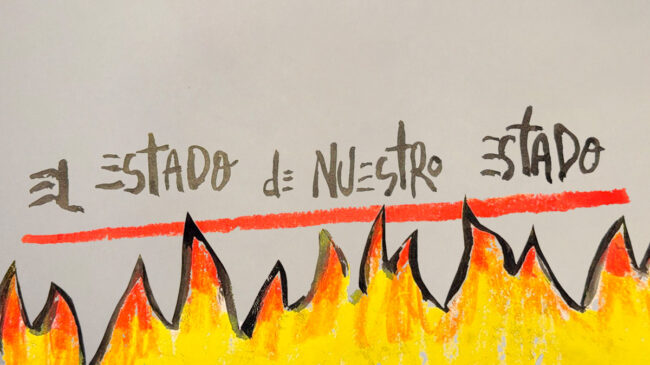 EL ESTADO de NUESTRO ESTADO